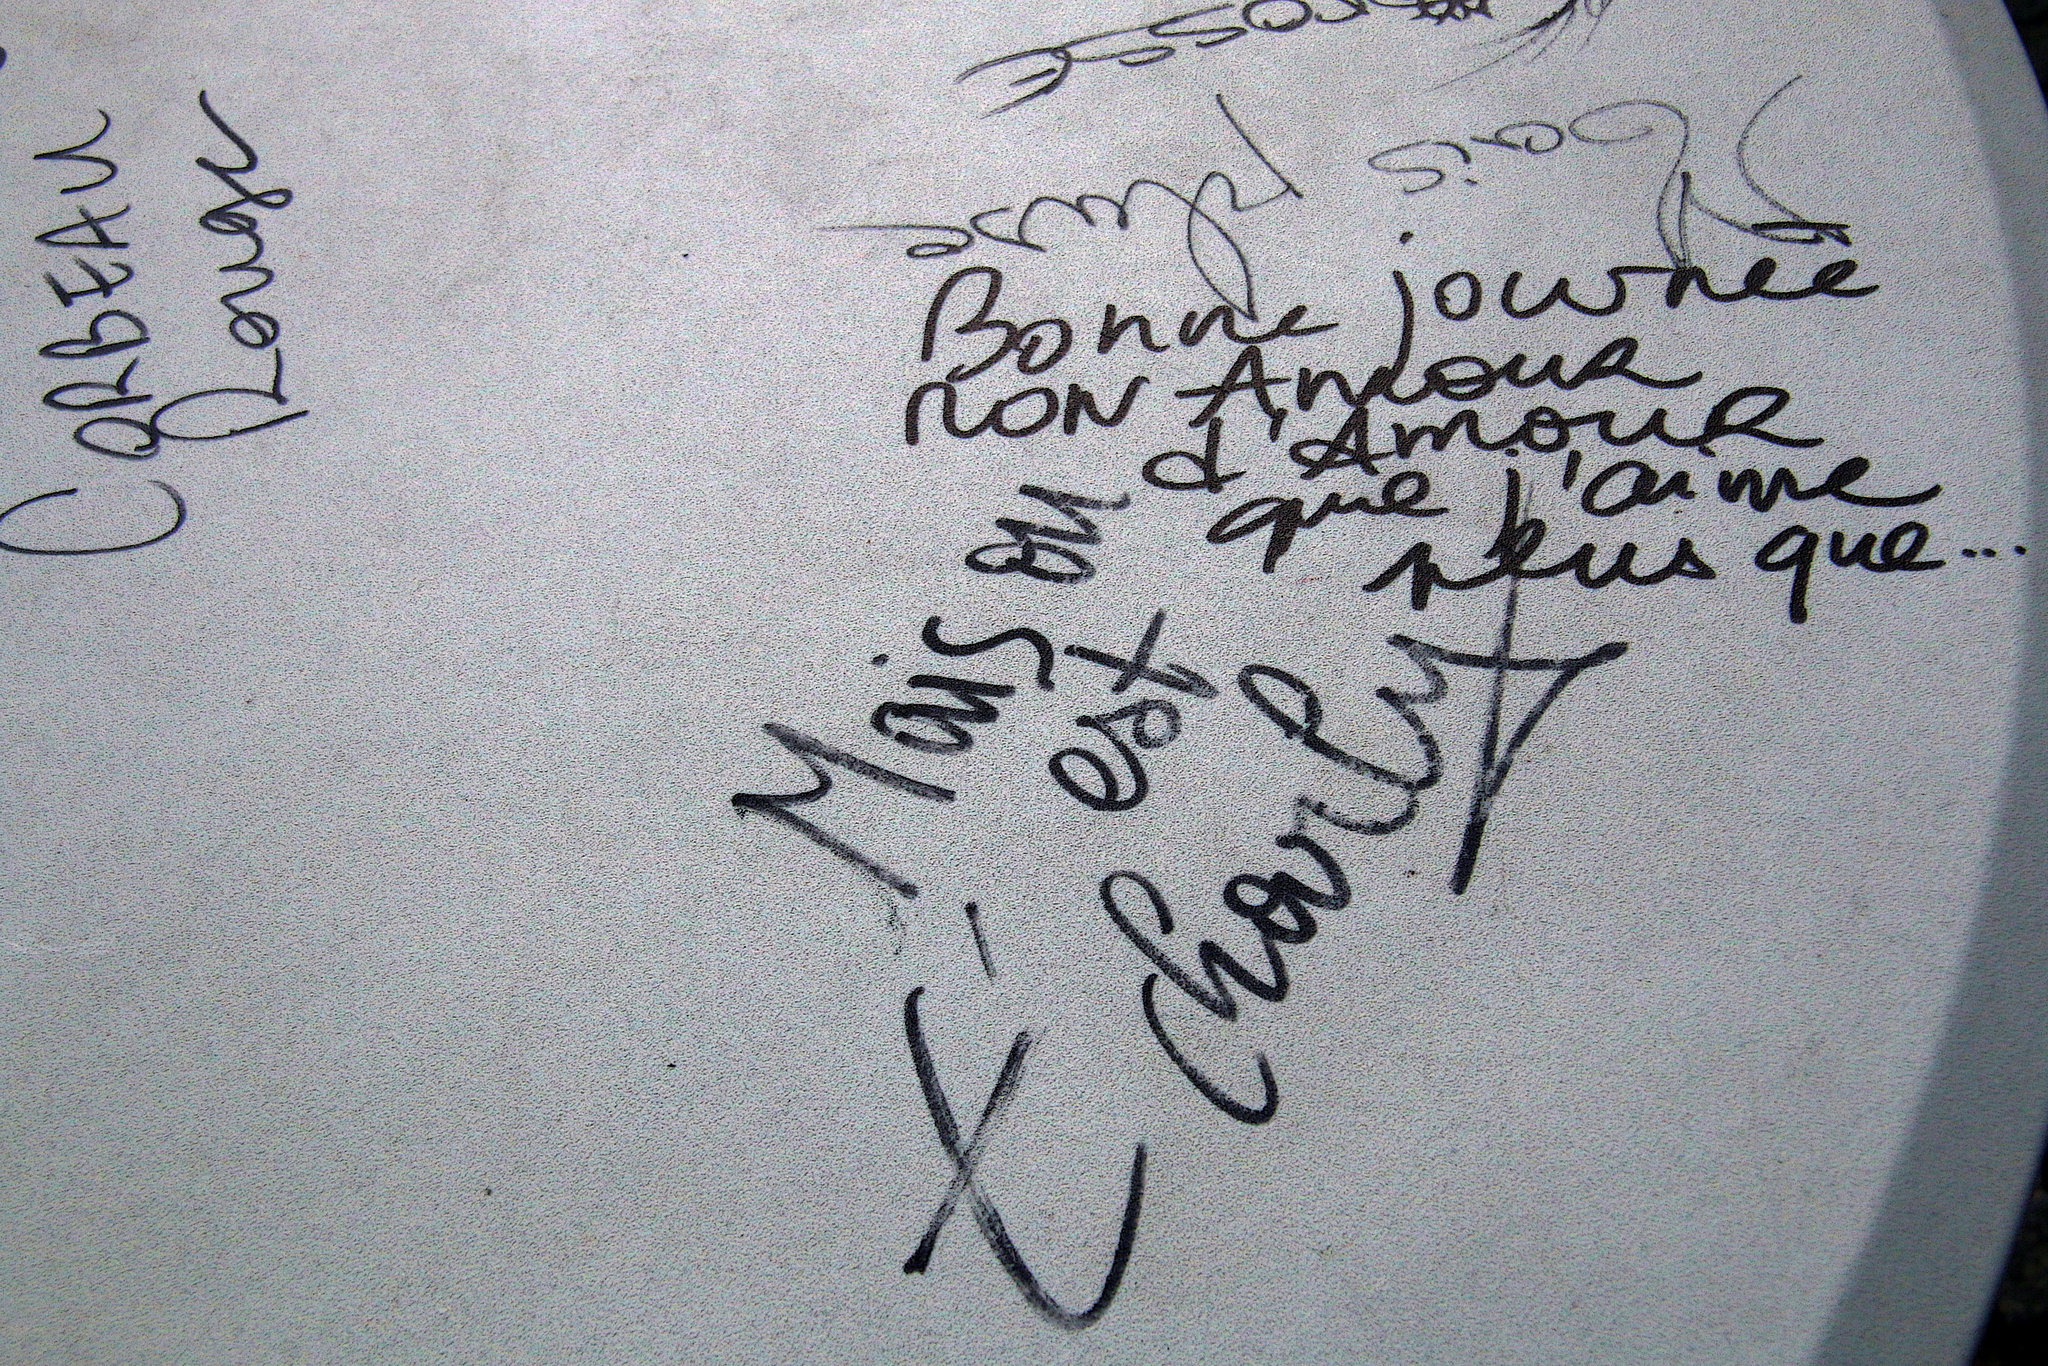 CORBEAU
Rouge
Bonne journée
mon Amour
d'Amour
que j'aime
plus que...
Mais où
est
Charly